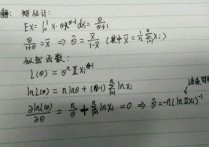 解: 矩估计:
EX = ∫₀¹ x·θx^(θ-1) dx = θ/(θ+1)
θ/(1+θ) = x̄ ⇒ θ̂ = x̄/(1-x̄) (其中 x̄ = 1/n Σ xᵢ)
似然函数:
L(θ) = θⁿ Π xᵢ^(θ-1)
ln L(θ) = n ln θ + (θ-1) Σ ln xᵢ
∂ ln L(θ)/∂θ = n/θ + Σ ln xᵢ = 0 ⇒ θ̂ = -n (ln Π xᵢ)⁻¹